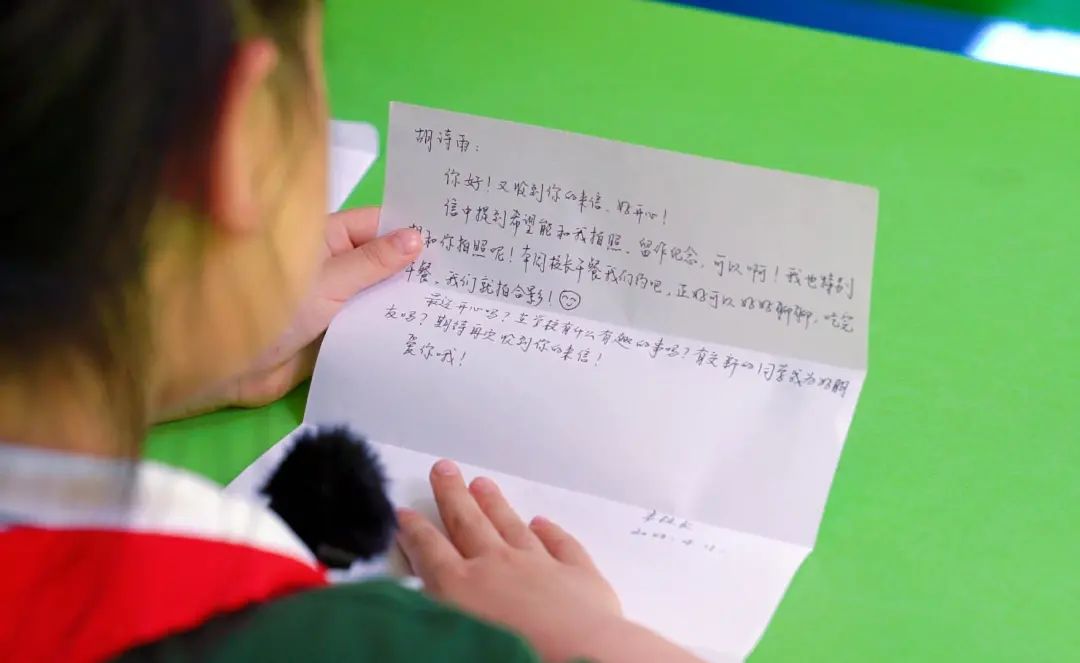 胡诗雨:
你好!又收到你的来信,好开心!
信中提到希望能和我拍照、留作纪念,可以啊!我也特别
想和你拍照呢!本周校长午餐我们约吧,正好可以好好聊聊,吃完
午餐,我们就拍合影!
最近开心吗?在学校有什么有趣的事吗?有交新的同学成为好朋
友吗?期待再次收到你的来信!
爱你哦!
校长